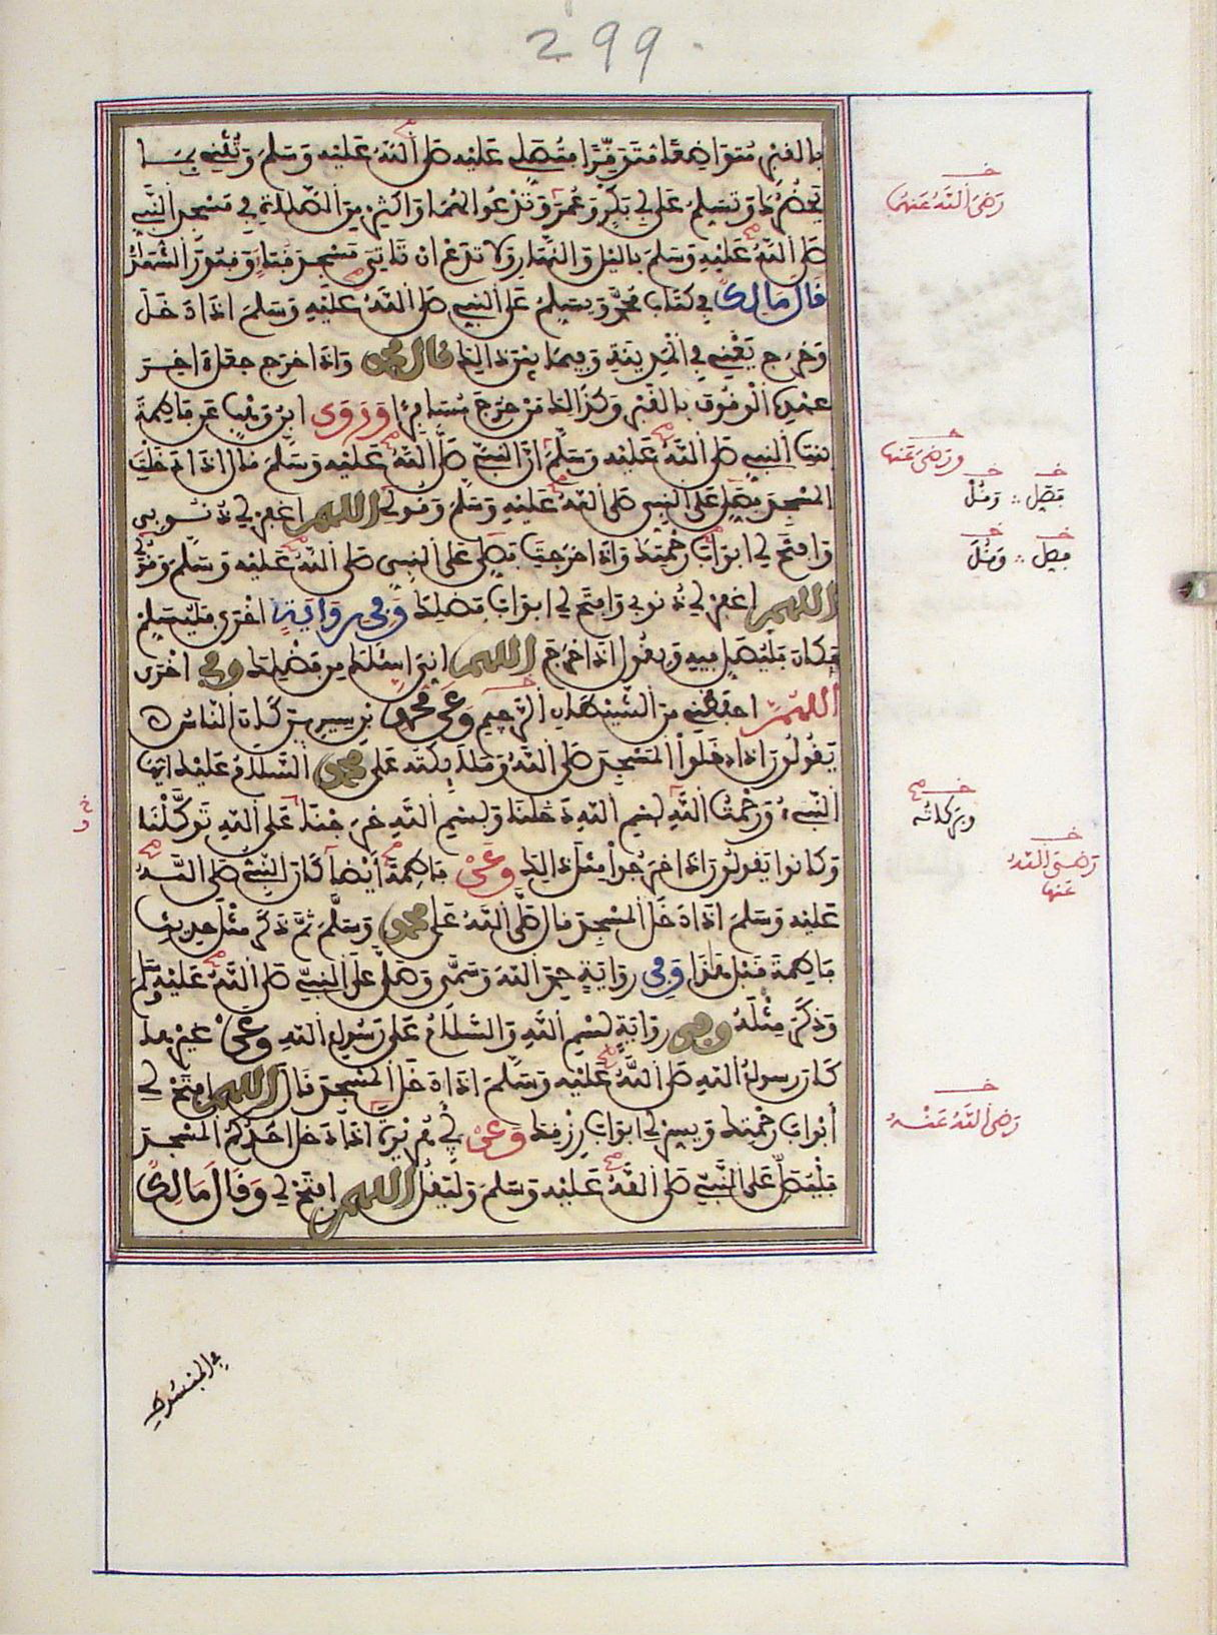 299
بالقبر متواضعا متوقرا فتصلي عليه صلى الله عليه وسلم وتثني بما
يحضرك وتسلم على أبي بكر وعمر وتدعوا لهما واكثر من الصلاة في مسجد النبي
صلى الله عليه وسلم بالليل والنهار ولا تدع ان تاتي مسجد قباء وقبور الشهداء
قال مالك في كتاب محمد ويسلم على النبي صلى الله عليه وسلم اذا دخل
وخرج يعني في المدينة وفيما بين ذالك قال محمد واذا خرج جعل ءاخر
عهده الوقوف بالقبر وكذالك من خرج مسافرا وروى ابن وهب عن فاطمة
بنت النبي صلى الله عليه وسلم ان النبي صلى الله عليه وسلم قال اذا دخلت
المسجد فصل على النبي صلى الله عليه وسلم وقولي اللهم اغفر لي ذنوبي
وافتح لي ابواب رحمتك واذا خرجت فصلي على النبي صلى الله عليه وسلم وقولي
اللهم اغفر لي ذنوبي وافتح لي ابواب فضلك وفي رواية اخرى فليسلم
مكان فليصل فيه ويقول اذا خرج اللهم اني اسئلك من فضلك وفي اخرى
اللهم احفظني من الشيطان الرجيم وعن محمد بن سيرين كان الناس
يقولون اذا دخلوا المسجد صلى الله وملائكته على محمد السلام عليك ايها
النبيء ورحمت الله بسم الله دخلنا وبسم الله خرجنا وعلى الله توكلنا
وكانوا يقولون اذا خرجوا مثل ذالك وعن فاطمة أيضا كان النبي صلى الله
عليه وسلم اذا دخل المسجد قال صلى الله على محمد وسلم ثم ذكر مثل حديث
فاطمة قبل هذا وفي رواية حمد الله وسمى وصلى على النبي صلى الله عليه وسلم
وذكر مثله وفي رواية بسم الله والسلام على رسول الله وعن غيرها
كان رسول الله صلى الله عليه وسلم اذا دخل المسجد قال اللهم افتح لي
أبواب رحمتك ويسر لي ابواب رزقك وعن أبي هريرة اذا دخل احدكم المسجد
فليصل على النبي صلى الله عليه وسلم وليقل اللهم افتح لي وقال مالك
رضي الله عنهما
ورضي عنها
فصل وقل
فصل وقل
وبركاته
رضي الله عنها
رضي الله عنه
في المبسوط